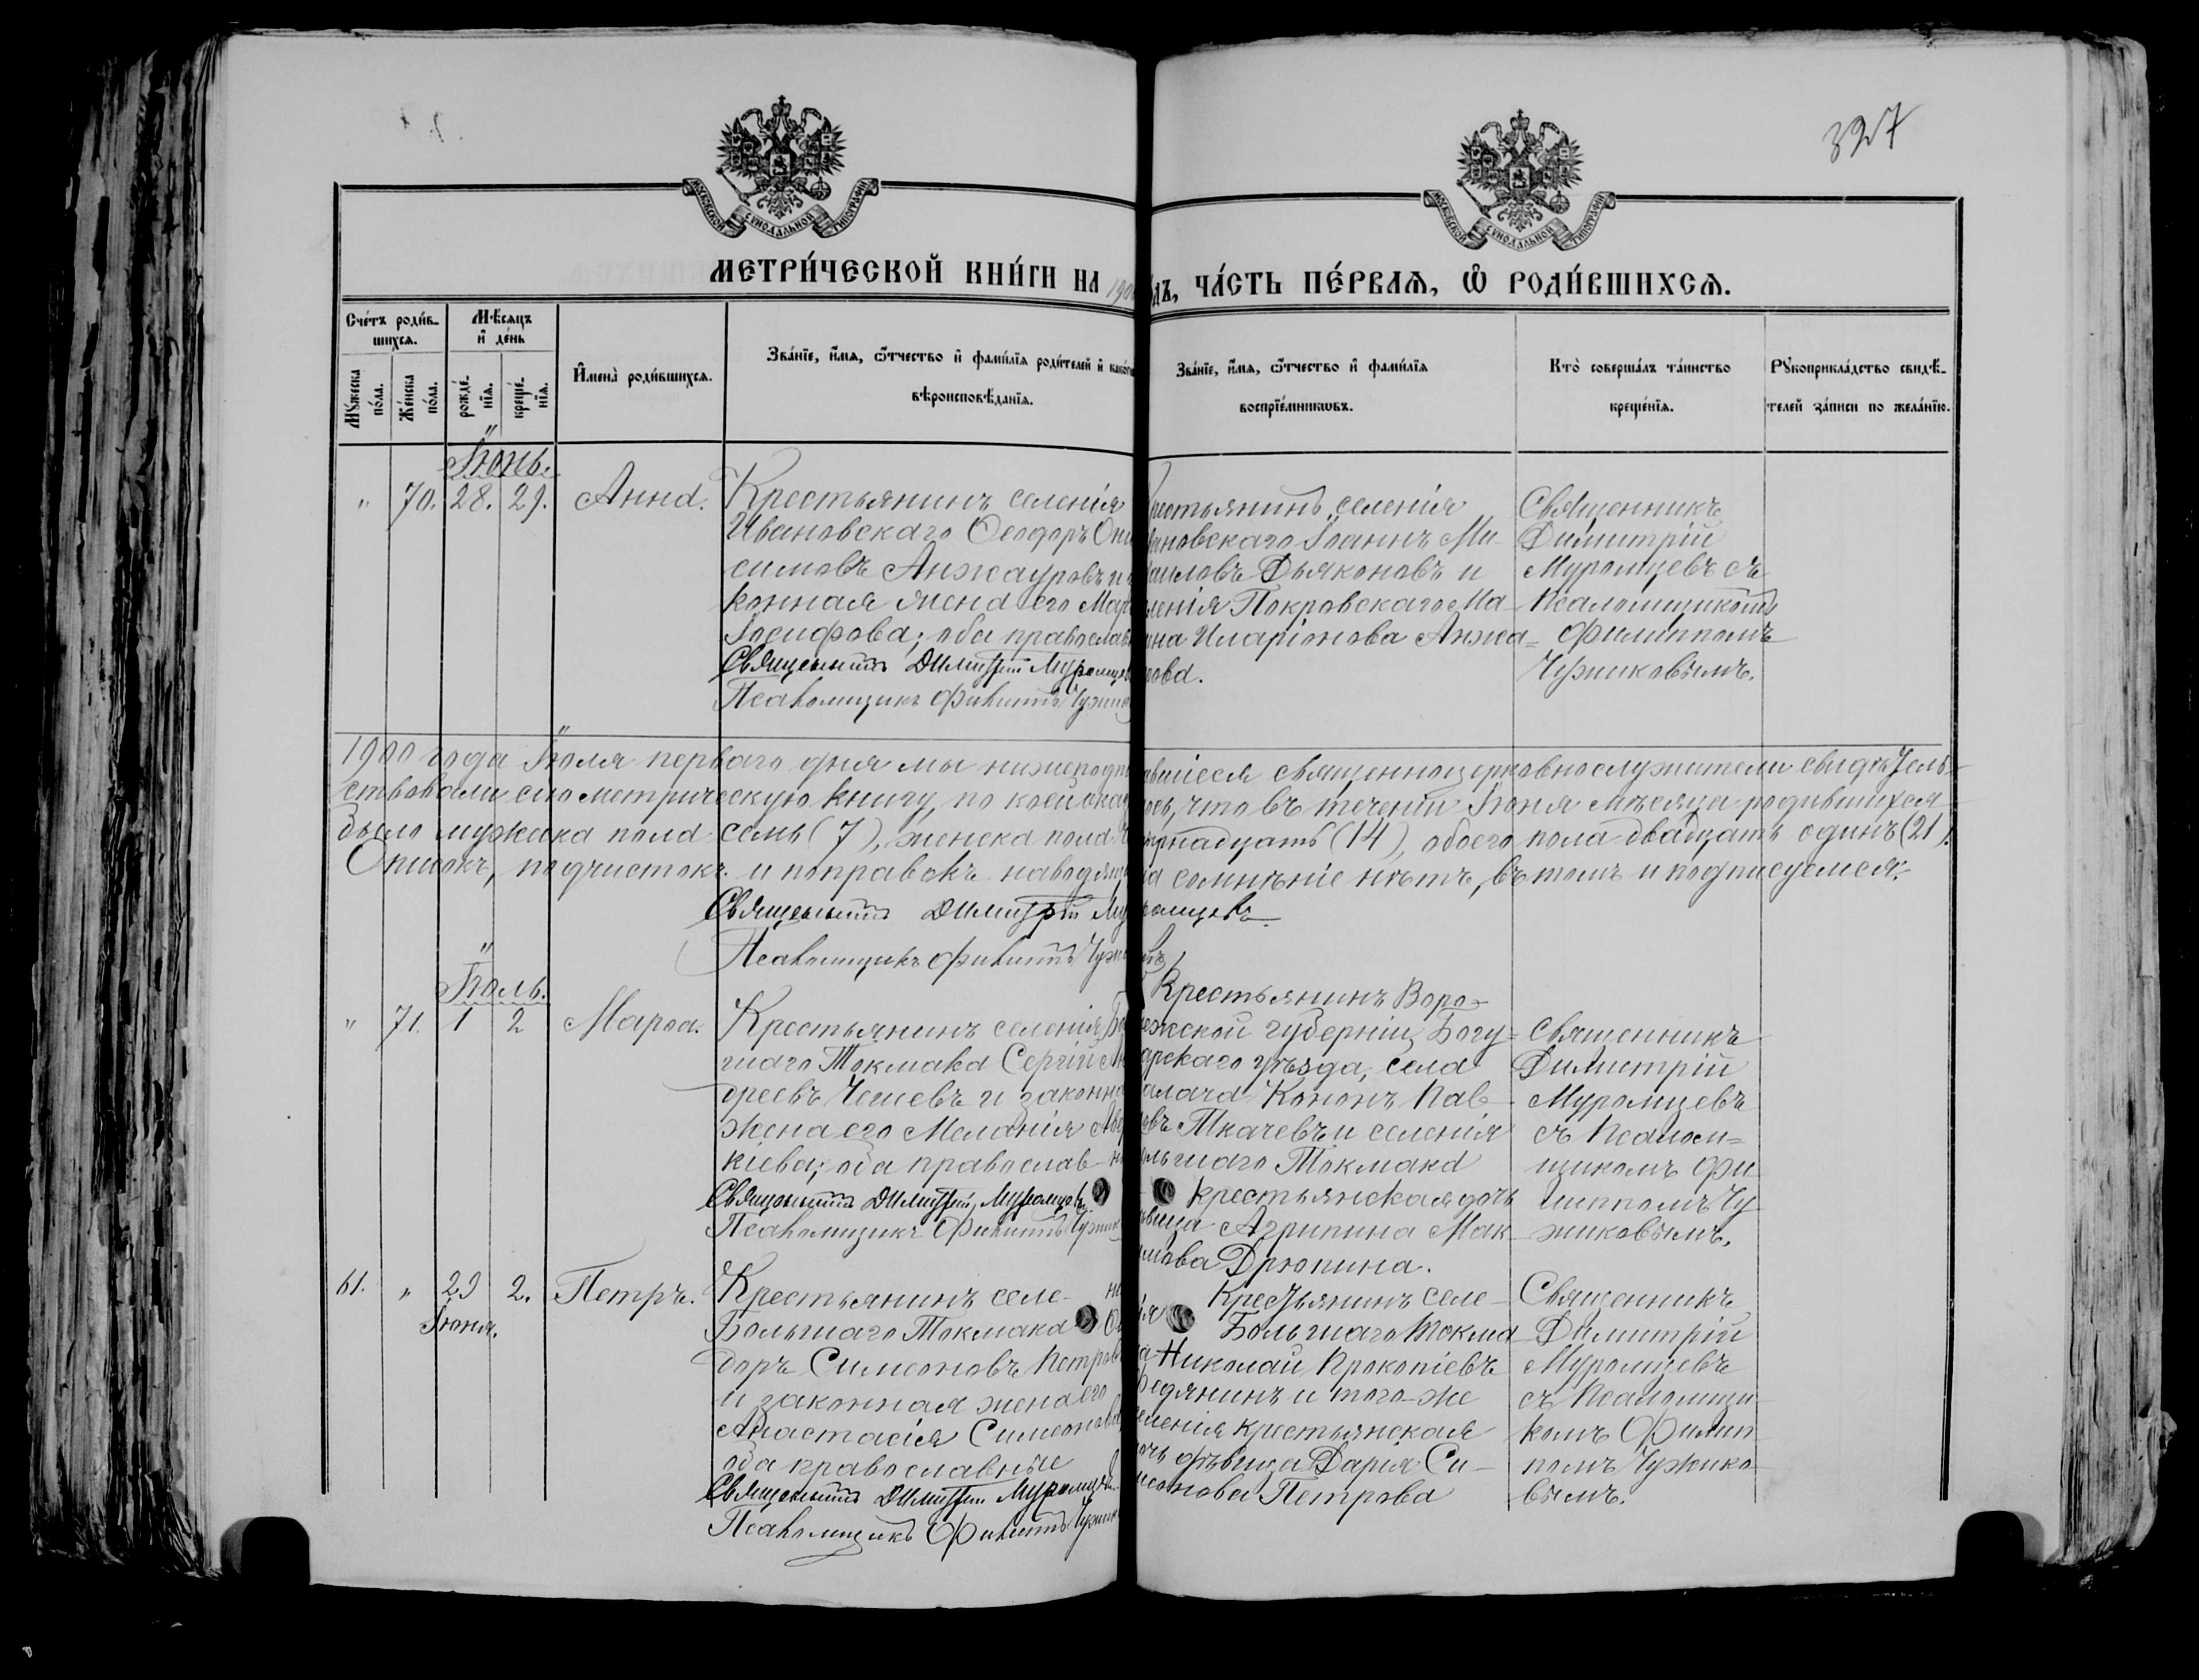 327
МОСКОВСКОЙ СѴНОДАЛЬНОЙ ТИПОГРАФІИ
МОСКОВСКОЙ СѴНОДАЛЬНОЙ ТИПОГРАФІИ
МЕТРИ́ЧЕСКОЙ КНИ́ГИ НА 1900
дъ, ЧА́СТЬ ПЕ́РВАѦ, Ѿ РОДИ́ВШИХСѦ.
Сче́тъ роди́в-
шихсѧ.
Мꙋ́жеска по́ла.
Же́нска по́ла.
Мѣ́сѧцъ
и҆ де́нь
рожде́-
нїѧ.
креще́-
нїѧ.
И҆мена̀ роди́вшихсѧ.
Зва́нїе, и҆́мѧ, ѻ҆́тчество и҆ фами́лїѧ роди́телей и҆
вѣроисповѣ́данїѧ.
Зва́нїе, и҆́мѧ, ѻ҆́тчество и҆ фами́лїѧ
воспрїе́мникѡвъ.
Кто̀ соверша́лъ та́инство
креще́нїѧ.
Рꙋкоприкла́дство свидѣ́-
телей за́писи по жела́нїю.
Іюнь.
" 70. 28. 29. Анна.
Крестьянинъ селенія
Ивановскаго Ѳеодоръ Они
симовъ Анжауровъ и
конная жена его Мар
Іосифова; оба православ
Священникъ Димитрій Муромцев
Псаломщикъ Филиппъ Чужик
рестьянинъ селенія
вановскаго Іоаннъ Ми-
хаиловъ Дьяконовъ и
ленія Покровскаго Ма-
рина Иларіонова Анжа-
рова.
Священникъ
Димитрій
Муромцевъ съ
Псаломщикомъ
Филиппомъ
Чужиковымъ.
1900 года Іюля перваго дня мы нижеподпи
савшіеся священноцерковнослужители свидѣтель-
ствовали сію метрическую книгу, по коей оказ
лось, что въ теченіи Іюня мѣсяца родившихся
было мужеска пола семь (7), женска пола че
тырнадцать (14), обоего пола двадцать одинъ (21).
Описокъ, подчистокъ и поправокъ наводящи
на сомнѣніе нѣтъ, въ томъ и подписуемся:
Священникъ Димитрій Муромцевъ
Псаломщикъ Филиппъ Чужи
Іюль.
" 71. 1 2 Марѳа.
Крестьянинъ селенія Бо
шаго Токмака Сергій Ан
дреевъ Чешевъ и законна
жена его Меланія
кіева; оба православ-
Священникъ Димитрій Муромцевъ
Псаломщикъ Филиппъ Чужик
Крестьянинъ Воро-
нежской губерніи, Богу-
чарскаго уѣзда, села
Калача Кононъ Пав-
ловъ Ткачевъ и селенія
Большаго Токмака
крестьянская дочь
дѣвица Агрипина Мак-
симова Дрюпина.
Священникъ
Димитрій
Муромцевъ
съ Псалом-
щикомъ Фи-
липпомъ Чу-
жиковымъ.
61. " 29 2. Петръ.
Іюня.
Крестьянинъ селе-
Большаго Токмака
доръ Симеоновъ Петров
и законная жена его
Анастасія Симеонова
оба православные
Священникъ Димитрій Муромцевъ
Псаломщикъ Филиппъ Чужик
Крестьянинъ селе-
нія Большаго Токма-
ка Николай Прокопіевъ
едянинъ и того-же
селенія крестьянская
дочь дѣвица Дарія Си-
меонова Петрова
Священникъ
Димитрій
Муромцевъ
съ Псаломщи-
комъ Филип-
помъ Чужико-
вымъ.